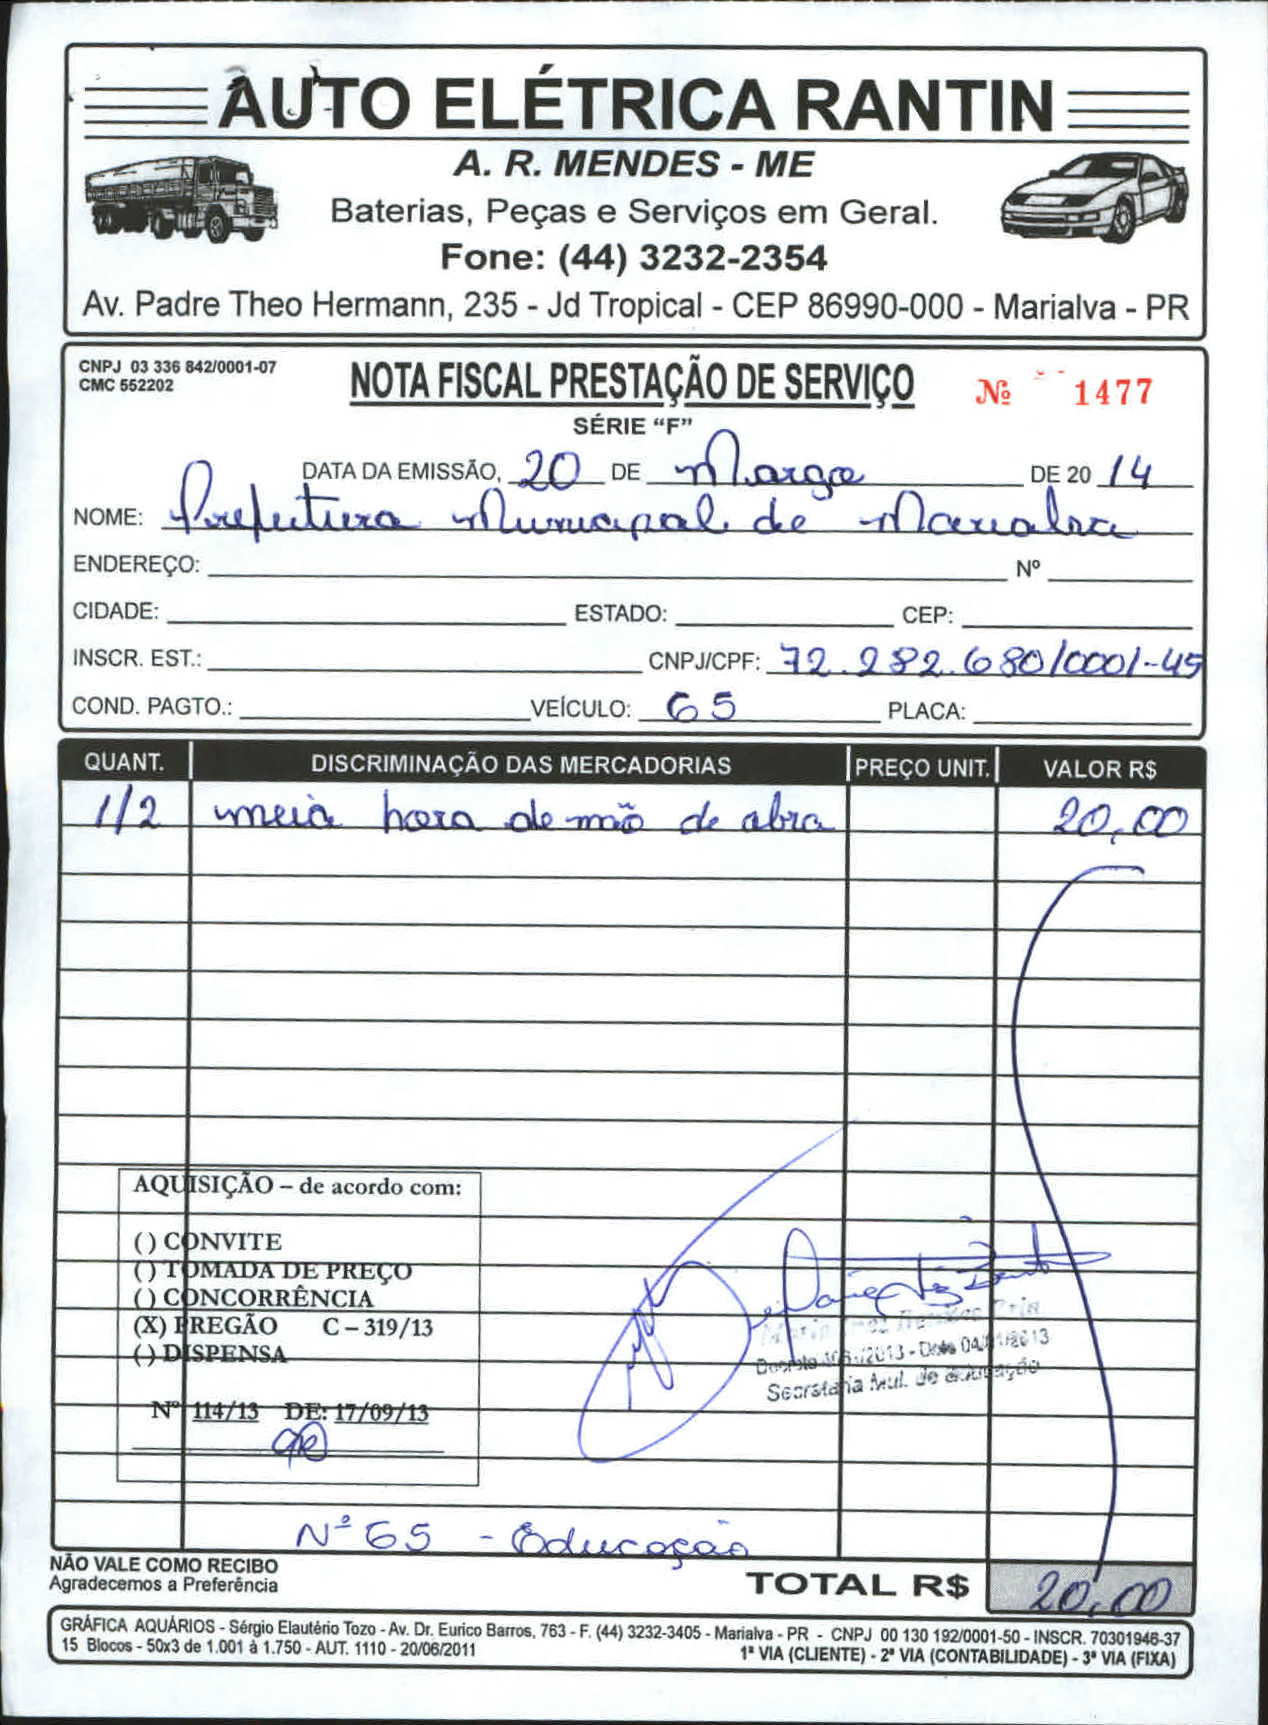 AUTO ELÉTRICA RANTIN
A. R. MENDES - ME
Baterias, Peças e Serviços em Geral.
Fone: (44) 3232-2354
Av. Padre Theo Hermann, 235 - Jd Tropical - CEP 86990-000 - Marialva - PR
CNPJ 03 336 842/0001-07
CMC 552202
NOTA FISCAL PRESTAÇÃO DE SERVIÇO
Nº 1477
SÉRIE “F”
DATA DA EMISSÃO, 20 DE Março DE 20 14
NOME: Prefeitura Municipal de Marialva
ENDEREÇO: Nº
CIDADE: ESTADO: CEP:
INSCR. EST.: CNPJ/CPF: 72.282.680/0001-45
COND. PAGTO.: VEÍCULO: 65 PLACA:
QUANT. DISCRIMINAÇÃO DAS MERCADORIAS PREÇO UNIT. VALOR R$
1/2 meia hora de mão de obra 20,00
AQUISIÇÃO – de acordo com:
( ) CONVITE
( ) TOMADA DE PREÇO
( ) CONCORRÊNCIA
(X) PREGÃO C – 319/13
( ) DISPENSA
Nº 114/13 DE: 17/09/13
Secretaria Mul. de Educação
Nº 65 - Educação
NÃO VALE COMO RECIBO
Agradecemos a Preferência
TOTAL R$ 20,00
GRÁFICA AQUÁRIOS - Sérgio Elautério Tozo - Av. Dr. Eurico Barros, 763 - F. (44) 3232-3405 - Marialva - PR - CNPJ 00 130 192/0001-50 - INSCR. 70301946-37
15 Blocos - 50x3 de 1.001 à 1.750 - AUT. 1110 - 20/06/2011
1ª VIA (CLIENTE) - 2ª VIA (CONTABILIDADE) - 3ª VIA (FIXA)